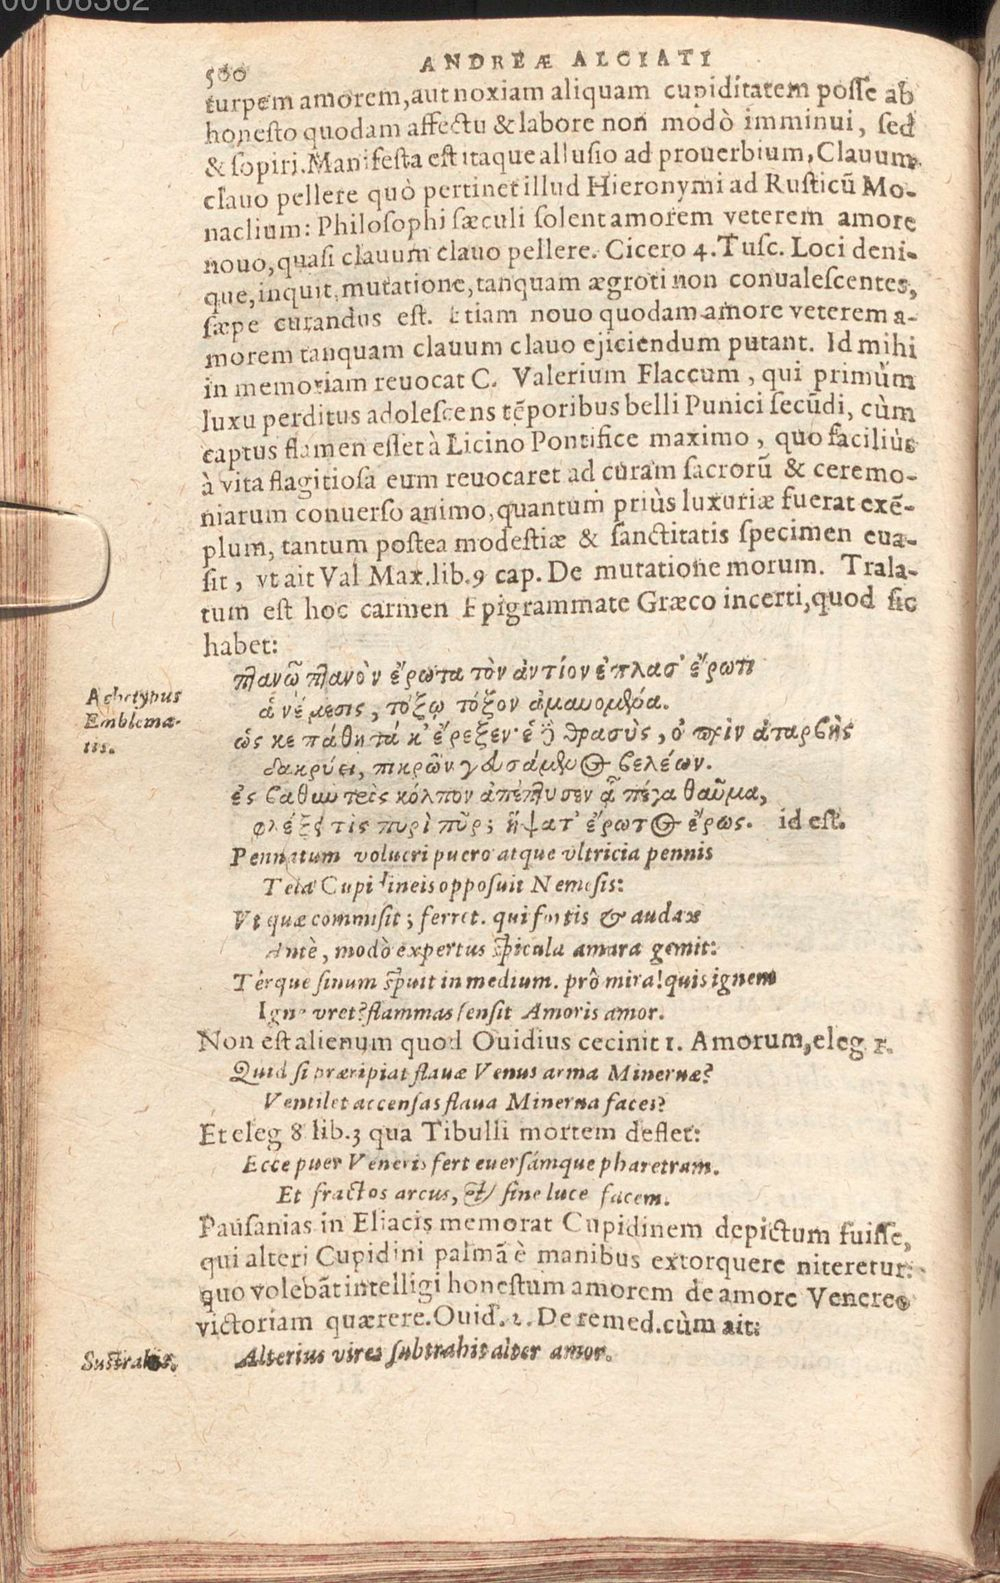 00106362
500 ANDREÆ ALCIATI
turpem amorem, aut noxiam aliquam cupiditatem posse ab
honesto quodam affectu & labore non modò imminui, sed
& sopiri. Manifesta est itaque allusio ad prouerbium, Clauum
clauo pellere quò pertinet illud Hieronymi ad Rusticũ Mo-
naclium: Philosophi sæculi solent amorem veterem amore
nouo, quasi clauum clauo pellere. Cicero 4. Tusc. Loci deni-
que, inquit, mutatione, tanquam ægroti non conualescentes,
sæpe curandus est. Etiam nouo quodam amore veterem a-
morem tanquam clauum clauo ejiciendum putant. Id mihi
in memoriam reuocat C. Valerium Flaccum, qui primùm
luxu perditus adolescens tẽporibus belli Punici secũdi, cùm
captus flamen esset à Licino Pontifice maximo, quo faciliùs
à vita flagitiosa eum reuocaret ad curam sacrorũ & ceremo-
niarum conuerso animo, quantum priùs luxuriæ fuerat exẽ-
plum, tantum postea modestiæ & sanctitatis specimen eua-
sit, vt ait Val Max. lib. 9 cap. De mutatione morum. Trala-
tum est hoc carmen Epigrammate Græco incerti, quod sic
habet:
πτανῶ πτανὸν ἔρωτα τὸν ἀντίον ἔπλασ' ἔρωτι
Achetypus
ἁ νέμεσις, τόξῳ τόξον ἀμαυομένα.
Emblema-
tis.
ὥς κε πάθη τά κ' ἔρεξεν· ἑ ὃ θρασὺς, ὁ πρὶν ἀταρβὴς
δακρύει, πικρῶν γευσάμενος βελέων.
ἐς βαθὺν τρὶς κόλπον ἀπέπτυσεν ἆ μέγα θαῦμα,
φλέξει τὶς πυρὶ πῦρ; ἥψατ' ἔρωτος ἔρως. id est.
Pennatum volucri puero atque vltricia pennis
Tela Cupidineis opposuit Nemesis:
Vt quæ commisit; ferret. qui fortis & audax
Antè, modò expertus spicula amara gemit:
Térque sinum spuit in medium. prô mira! quis ignem
Igne vret? flammas sensit Amoris amor.
Non est alienum quod Ouidius cecinit 1. Amorum, eleg 1.
Quid si præripiat flauæ Venus arma Mineruæ?
Ventilet accensas flaua Minerua faces?
Et eleg 8 lib. 3 qua Tibulli mortem deflet:
Ecce puer Veneris fert euersámque pharetram.
Et fractos arcus, & sine luce facem.
Pausanias in Eliacis memorat Cupidinem depictum fuisse,
qui alteri Cupidini palmã è manibus extorquere niteretur:
quo volebãt intelligi honestum amorem de amore Venereo
victoriam quærere. Ouid. 1. De remed. cùm ait:
Sustrahit. Alterius vires subtrahit alter amor.